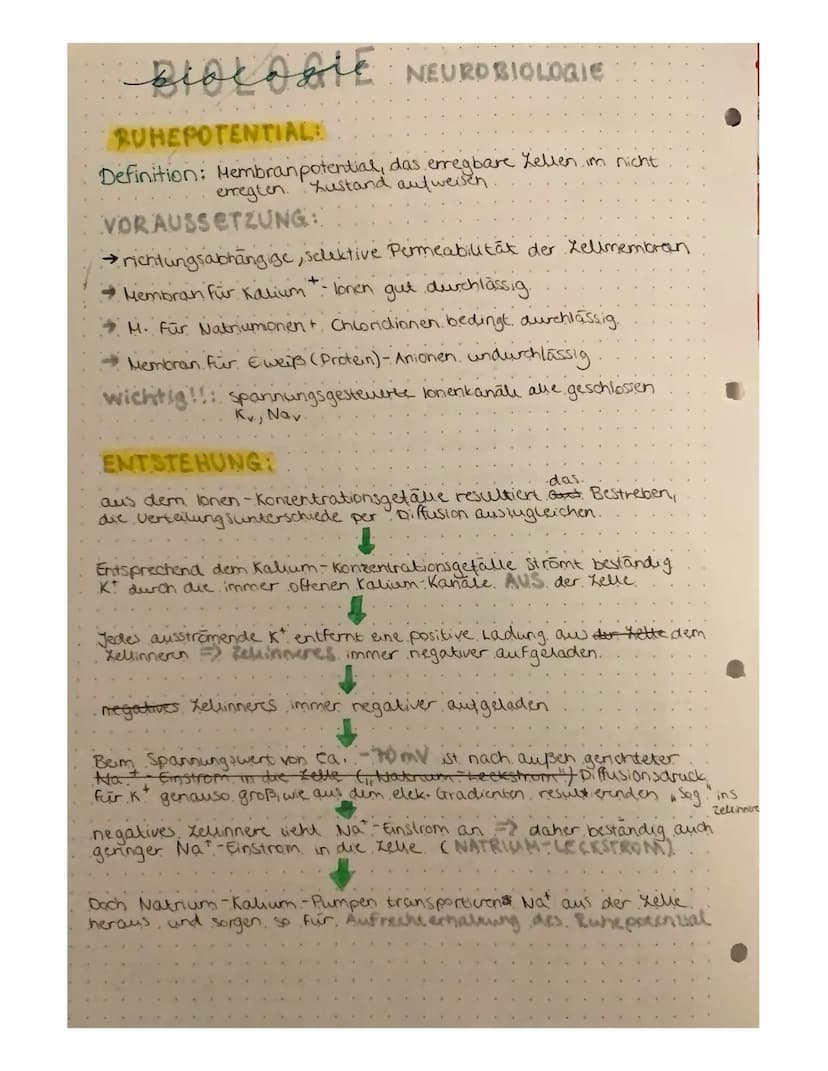 BIOLOGIE biologie NEUROBIOLOGIE
RUHEPOTENTIAL:
Definition: Membranpotential, das erregbare Zellen im nicht
erregten Zustand aufweisen.
VORAUSSETZUNG:
→ richtungsabhängige, selektive Permeabilität der Zellmembran
→ Membran für Kalium⁺-Ionen gut durchlässig.
→ M. für Natriumonen + Chloridionen bedingt durchlässig.
→ Membran für Eweiß (Protein)-Anionen undurchlässig
wichtig!!: spannungsgesteuerte Ionenkanäle alle geschlossen
Kv, Nav
ENTSTEHUNG:
das
aus dem Ionen-Konzentrationsgefälle resultiert Bestreben,
die Verteilungsunterschiede per Diffusion auszugleichen.
Entsprechend dem Kalium-Konzentrationsgefälle strömt beständig
K⁺ durch die immer offenen Kalium-Kanäle AUS der Zelle
Jedes ausströmende K⁺ entfernt eine positive Ladung aus der Zelle dem
Zellinneren ⇒ Zellinneres immer negativer aufgeladen.
negatives Zellinneres immer negativer aufgeladen
Beim Spannungswert von Ca. -70mV ist nach außen gerichteter
Na⁺-Einstrom in die Zelle („Natrium-Leckstrom") Diffusionsdruck
für K⁺ genauso groß, wie aus dem elek. Gradienten resultierenden „Sog" ins
Zellinnere
negatives Zellinnere zieht Na⁺-Einstrom an ⇒ daher beständig auch
geringer Na⁺-Einstrom in die Zelle (NATRIUM-LECKSTROM)
Doch Natrium-Kalium-Pumpen transportieren Na⁺ aus der Zelle
heraus und sorgen so für Aufrechterhaltung des Ruhepotenzial